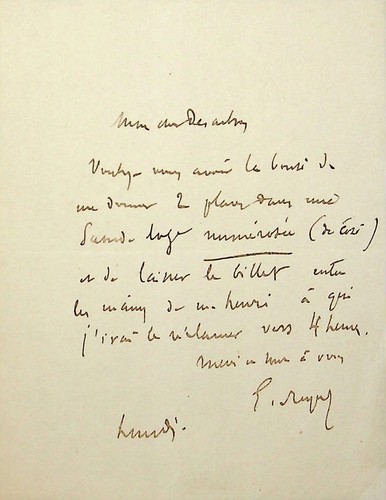 Mon cher Desarbres
Voulez-vous avoir la bonté de
me donner 2 places dans une
grande loge numérotée (de côté)
et de laisser le billet entre
les mains de M. Henri à qui
j'irai le réclamer vers 4 heures.
Merci à vous
E. Reyer
Lundi.